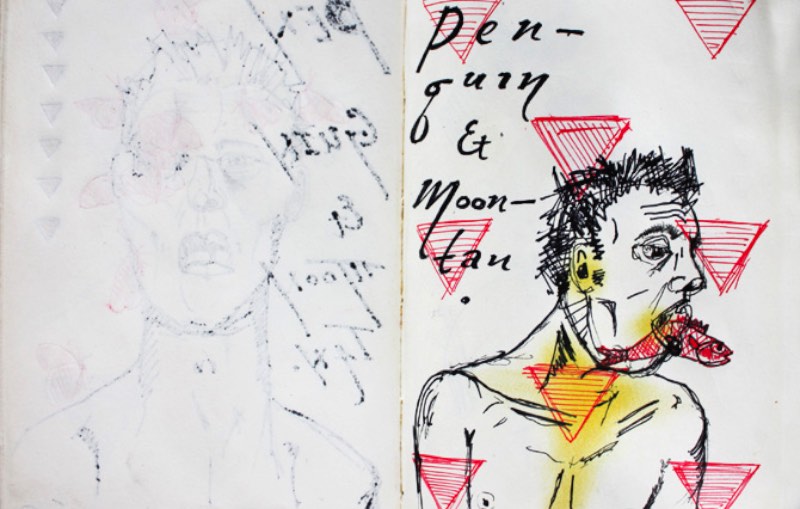 Pen-
guin
&
Moon-
tan
.